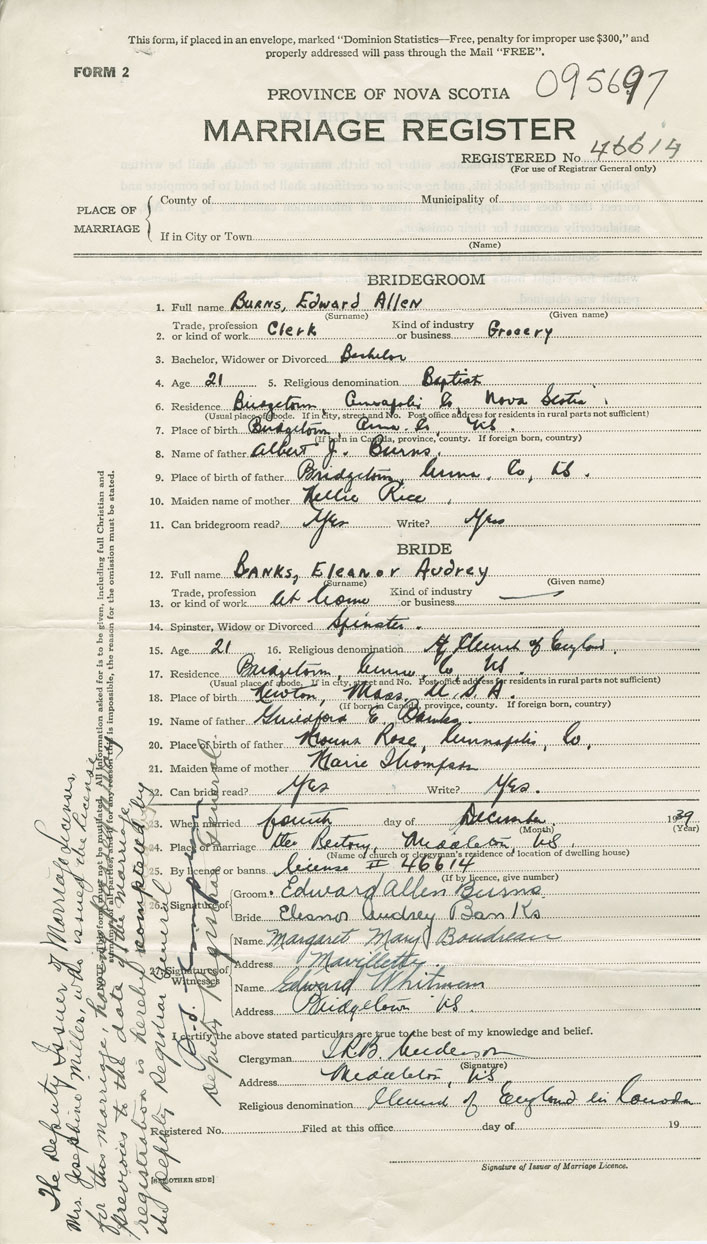 This form, if placed in an envelope, marked "Dominion Statistics—Free, penalty for improper use $300," and
properly addressed will pass through the Mail "FREE".
FORM 2
095697
PROVINCE OF NOVA SCOTIA
MARRIAGE REGISTER
REGISTERED No. 46614
(For use of Registrar General only)
PLACE OF MARRIAGE
County of Municipality of
If in City or Town
(Name)
BRIDEGROOM
1. Full name Burns, Edward Allen
(Surname) (Given name)
2. Trade, profession or kind of work Clerk Kind of industry or business Grocery
3. Bachelor, Widower or Divorced Bachelor
4. Age 21 5. Religious denomination Baptist
6. Residence Bridgetown, Annapolis Co, Nova Scotia
(Usual place of abode. If in city, street and No. Post office address for residents in rural parts not sufficient)
7. Place of birth Bridgetown, Anna. Co, NS.
(If born in Canada, province, county. If foreign born, country)
8. Name of father Albert J. Burns.
9. Place of birth of father Bridgetown, Anna. Co, NS.
10. Maiden name of mother Nellie Rice
11. Can bridegroom read? Yes Write? Yes
BRIDE
12. Full name Banks, Eleanor Audrey
(Surname) (Given name)
13. Trade, profession or kind of work at home Kind of industry or business —
14. Spinster, Widow or Divorced Spinster.
15. Age 21 16. Religious denomination Church of England.
17. Residence Bridgetown, Anna. Co NS.
(Usual place of abode. If in city, street and No. Post office address for residents in rural parts not sufficient)
18. Place of birth Newton, Mass, U.S.A.
(If born in Canada, province, county. If foreign born, country)
19. Name of father Guildford E. Banks.
20. Place of birth of father Mount Rose, Annapolis, Co.
21. Maiden name of mother Marie Thompson
22. Can bride read? Yes Write? Yes.
23. When married fourth day of December 1939
(Month) (Year)
24. Place of marriage the Rectory, Middleton, NS.
(Name of church or clergyman's residence or location of dwelling house)
25. By licence or banns license # 46614
(If by licence, give number)
26. Signature of
Groom Edward Allen Burns
Bride Eleanor Audrey Banks
27. Signatures of Witnesses
Name Margaret Mary Boudreau
Address Mavillette
Name Edward Whitman
Address Bridgetown NS.
I certify the above stated particulars are true to the best of my knowledge and belief.
Clergyman Anderson
(Signature)
Address Middleton, NS
Religious denomination Church of England in Canada
Registered No. Filed at this office day of 19
Signature of Issuer of Marriage Licence.
[SEE OTHER SIDE]
NOTE—This form must not be mutilated. All information asked for is to be given, including full Christian and
surnames of all parties, and if for any reason this is impossible, the reason for the omission must be stated.
The Deputy Issuer of Marriage Licenses,
Mrs. Josephine Miller, was issuing the License
for this Marriage,
previous to the date of the Marriage
registration is hereby completed by
the Deputy Registrar General
Deputy Registrar General.